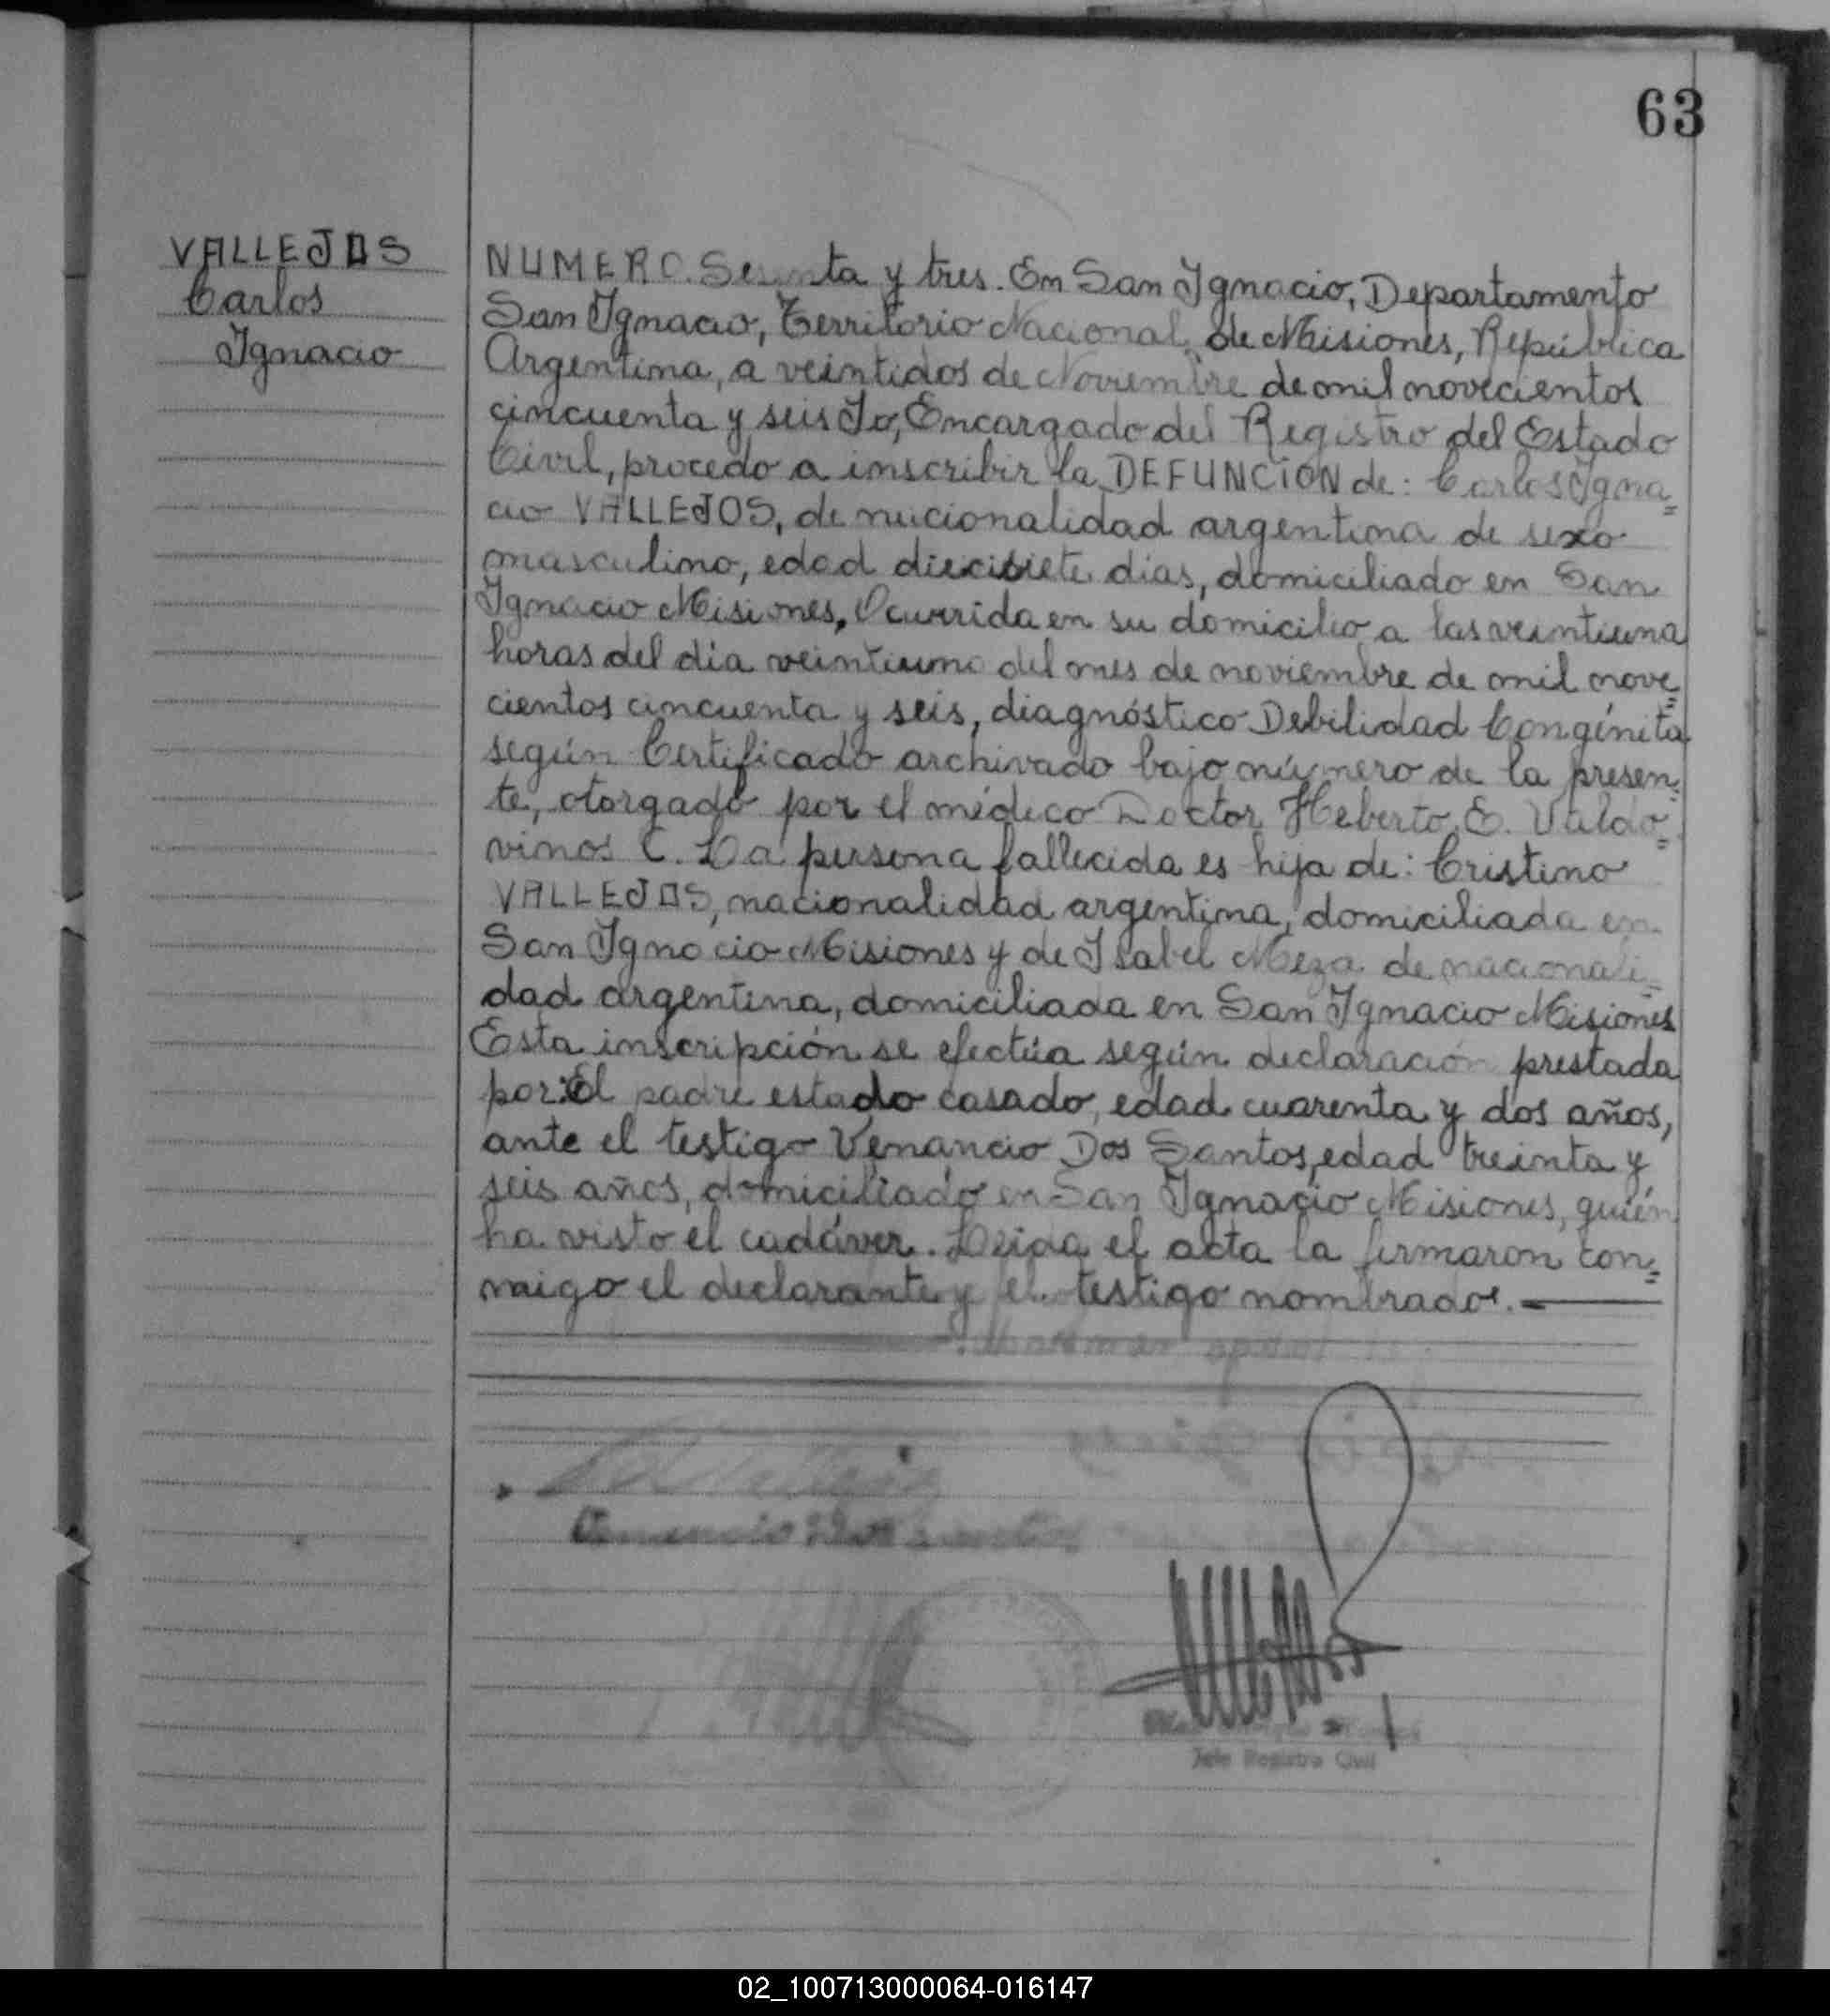 63
VALLEJOS
Carlos
Ignacio
NUMERO. Sesenta y tres. En San Ignacio, Departamento
San Ignacio, Territorio Nacional de Misiones, República
Argentina, a veintidos de Noviembre de mil novecientos
cincuenta y seis Yo, Encargado del Registro del Estado
Civil, procedo a inscribir la DEFUNCION de: Carlos Igna=
cio VALLEJOS, de nacionalidad argentina de sexo
masculino, edad diecisiete dias, domiciliado en San
Ignacio Misiones, Ocurrida en su domicilio a las veintiuna
horas del dia veintiuno del mes de noviembre de mil nove=
cientos cincuenta y seis, diagnóstico Debilidad Congénita
según Certificado archivado bajo número de la presen=
te, otorgado por el médico Doctor Heberto E. Valdo=
vinos C. La persona fallecida es hija de: Cristino
VALLEJOS, nacionalidad argentina, domiciliada en
San Ignacio Misiones y de Isabel Meza de nacionali=
dad argentina, domiciliada en San Ignacio Misiones
Esta inscripción se efectúa según declaración prestada
por: El padre estado casado, edad cuarenta y dos años,
ante el testigo Venancio Dos Santos, edad treinta y
seis años, domiciliado en San Ignacio Misiones, quién
ha visto el cadáver. Leida el acta la firmaron con=
migo el declarante y el testigo nombrado.
Venancio Dos Santos
Jefe Registro Civil
02_100713000064-016147